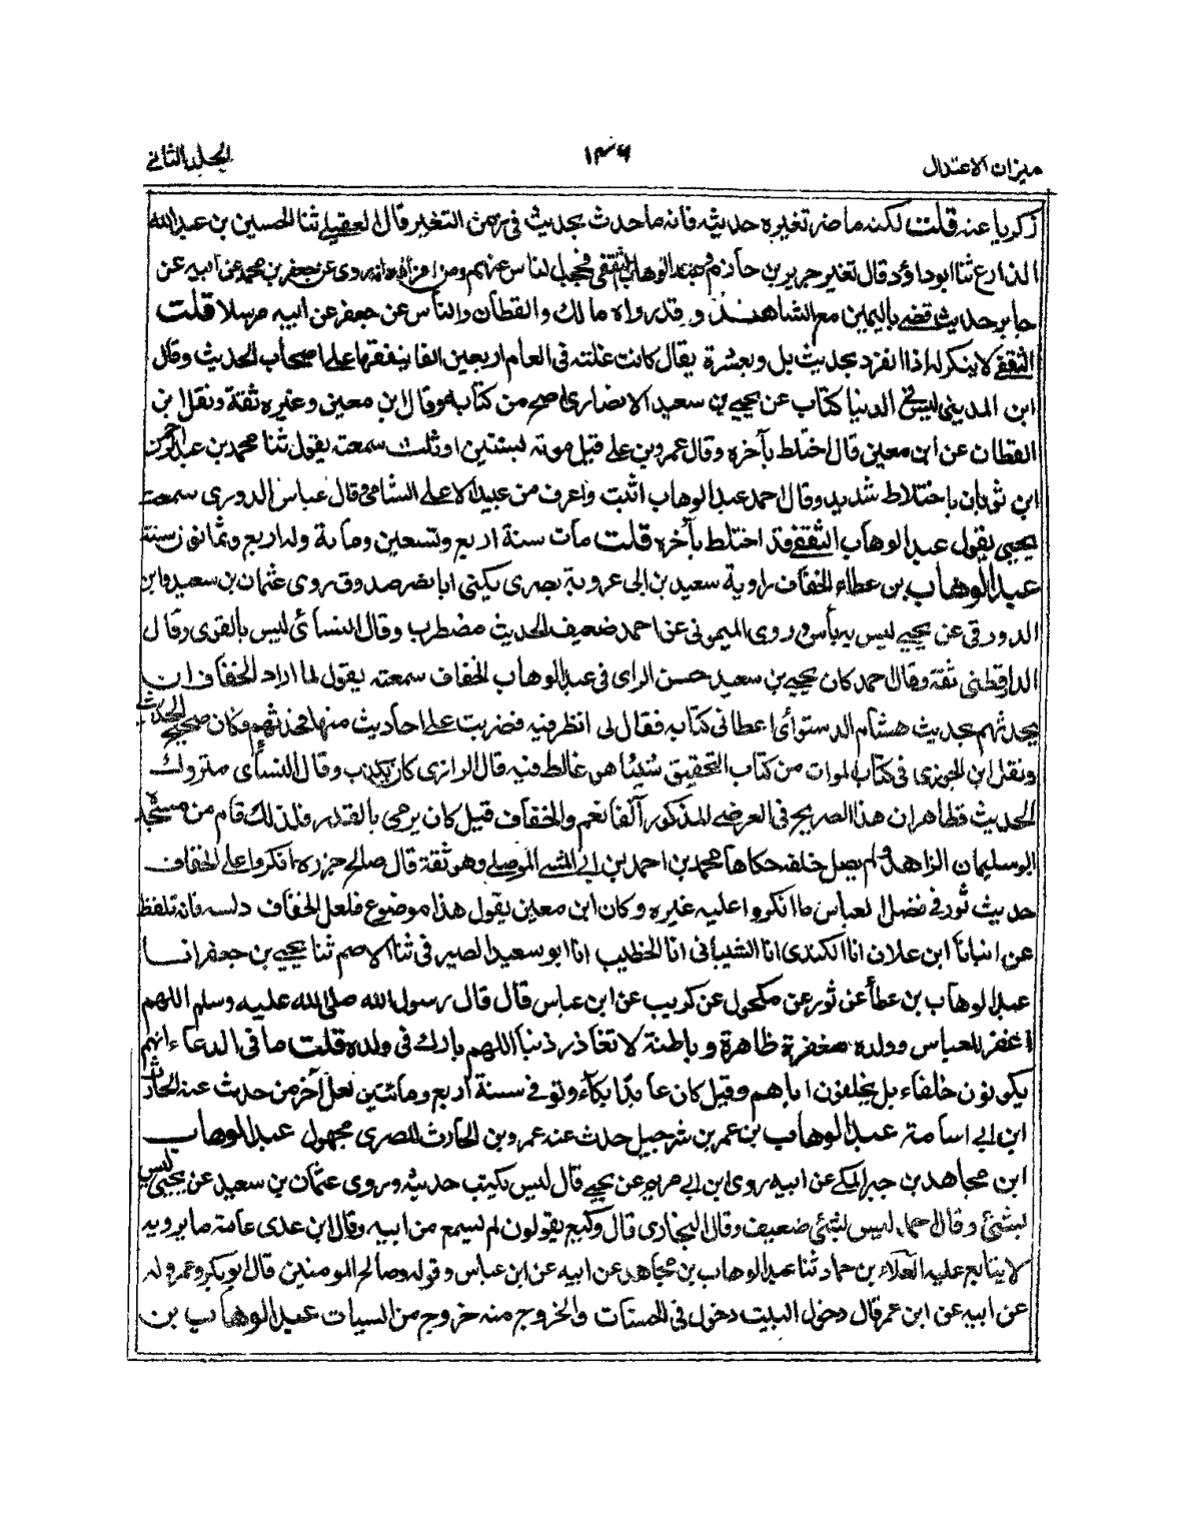 ميزان الاعتدال
١٤٦
الجلد الثاني
زكريا عنه قلت لكنه ما ضر تغيره حديثه فانه ما حدث بحديث في زمن التغير قال العقيلي ثنا الحسين بن عبد الله
الذارع ثنا ابو داؤد قال تغير جرير بن حازم وعبد الوهاب الثقفي فحجب الناس عنهم ومن افراده انه روى عن جعفر بن محمد عن ابيه عن
جابر حديث قضى باليمين مع الشاهد وقد رواه مالك والقطان والناس عن جعفر عن ابيه مرسلا قلت
الثقفي لا ينكر له اذا انفرد بحديث بل وبعشرة يقال كانت غلته في العام اربعين الفا ينفقها على اصحاب الحديث وقال
ابن المديني ليس في الدنيا كتاب عن يحيى بن سعيد الانصاري اصح من كتابه وقال ابن معين وغيره ثقة ونقل ابن
القطان عن ابن معين قال اختلط بآخره وقال عمرو بن علي قبل موته لسنتين او ثلث سمعته يقول ثنا محمد بن عبد الرحمن
ابن ثوبان باختلاط شديد وقال احمد عبد الوهاب اثبت واعرف من عبد الاعلى الشامي قال عباس الدوري سمعت
يحيى يقول عبد الوهاب الثقفي قد اختلط بآخره قلت مات سنة اربع وتسعين ومأية وله اربع وثمانون سنة
عبد الوهاب بن عطاء الخفاف راوية سعيد بن ابي عروبة بصري يكنى ابا نصر صدوق روى عثمان بن سعيد وابن
الدورقي عن يحيى ليس به بأس وروى الميموني عن احمد ضعيف الحديث مضطرب وقال النسأئي ليس بالقوى وقال
الدارقطني ثقة وقال احمد كان يحيى بن سعيد حسن الراى في عبد الوهاب الخفاف سمعته يقول لما اراد الخفاف ان
يحدثهم بحديث هشام الدستوائى اعطاني كتابه فقال لي انظر فيه فضربت على احاديث منها فحدثهم وكان صحيح الحديث
ونقل ابن الجوزي في كتاب الموات من كتاب التحقيق شيئا هو غالط فيه قال الرازى كان يكذب وقال النسأى متروك
الحديث فظاهر ان هذا الصريح في العرضى المذكور آنفا نعم والخفاف قيل كان يرمى بالقدر فلذلك قام من مسجده
ابو سليمان الزاهد ولم يصل خلفه حكاها محمد بن احمد بن ابي الموصلي وهو ثقة قال صالح جزره انكروا على الخفاف
حديث ثور في فضل العباس ما انكروا عليه غيره وكان ابن معين يقول هذا موضوع فلعل الخفاف دلسه فانه تلفظ
عن انبانا ابن علان انا الكندى انا الشيباني انا الخطيب انا ابو سعيد الصيرفي ثنا الاصم ثنا يحيى بن جعفر انا
عبد الوهاب بن عطأ عن ثور عن مكحول عن كريب عن ابن عباس قال قال رسول الله صلى الله عليه وسلم اللهم
اغفر للعباس وولده مغفرة ظاهرة وباطنة لا تغادر ذنبا اللهم بارك في ولده قلت ما في الدعاء انهم
يكونون خلفاء بل يخلفون اباهم وقيل كان عابدا بكّاء وتوفى سنة اربع ومأتين لعل آخر من حدث عنه الحارث
ابن ابي اسامة عبد الوهاب بن عمر بن شرحبيل حدث عنه عمرو بن الحارث المصري مجهول عبد الوهاب
ابن مجاهد بن جبر المكي عن ابيه روى ابن ابي مريم عن يحيى قال ليس يكتب حديثه وروى عثمان بن سعيد عن يحيى ليس
بشئ وقال احمد ليس بشئ ضعيف وقال البخاري قال وكيع يقولون لم يسمع من ابيه وقال ابن عدى عامة ما يرويه
لا يتابع عليه العلاء بن حماد ثنا عبد الوهاب بن مجاهد عن ابيه عن ابن عباس وقوله وصالح المومنين قال ابو بكر وعمر وله
عن ابيه عن ابن عمر قال دخول البيت دخول في الحسنات والخروج منه خروج من السيات عبد الوهاب بن